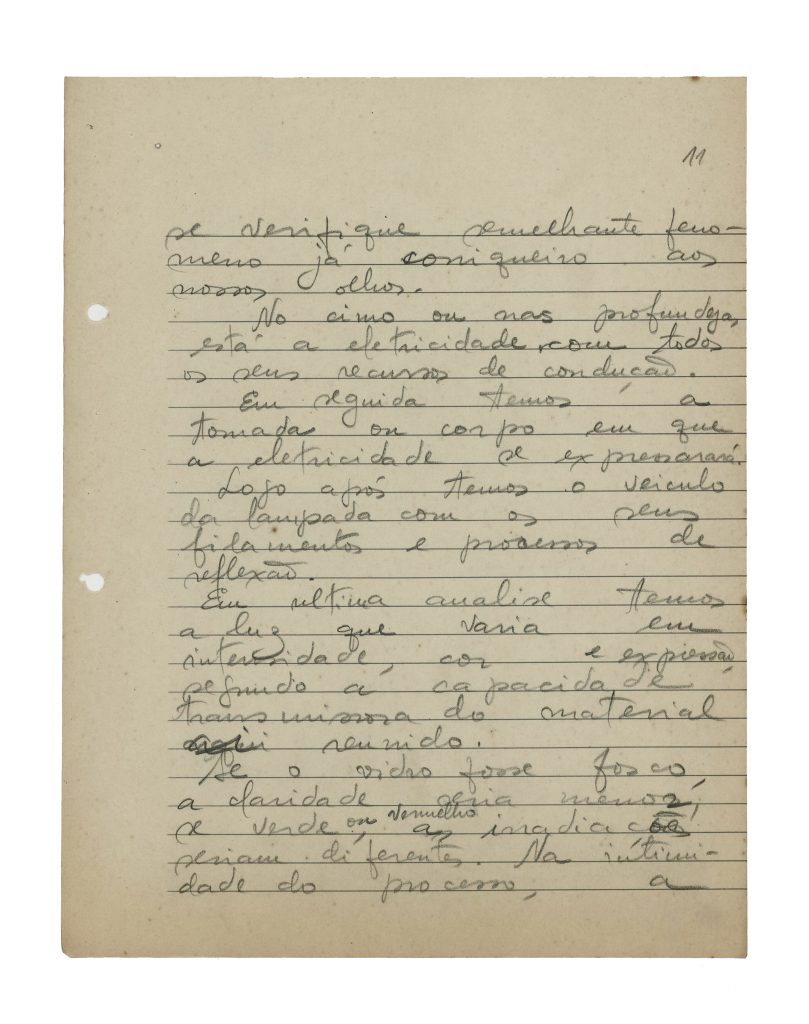 11
se verifique semelhante feno-
meno já corriqueiro aos
nossos olhos.
No cimo ou nas profundezas,
está a eletricidade com todos
os seus recursos de condução.
Em seguida temos a
tomada ou corpo em que
a eletricidade se expressará.
Logo após temos o veiculo
da lampada com os seus
filamentos e processos de
reflexão.
Em ultima analise temos
a luz que varia em
intensidade, cor e expressão,
segundo a capacidade
transmissora do material
reunido.
Se o vidro fosse fosco,
a claridade seria menor;
se verde ou vermelho, as irradiações
seriam diferentes. Na intimi-
dade do processo, a